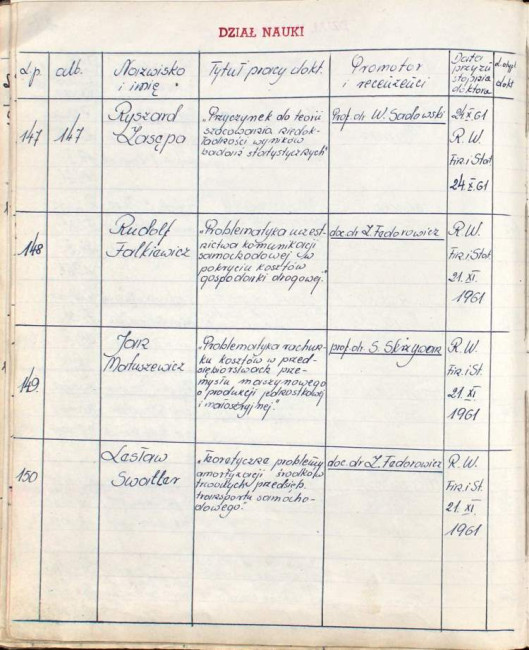 DZIAŁ NAUKI
L.p. alb. Nazwisko i imię Tytuł pracy dokt. Promotor i recenzenci Data przyzn. stopnia doktora
147 147 Ryszard Zasępa
„Przyczynek do teorii
szacowania niedok-
ładności wyników
badań statystycznych"
Prof. dr W. Sadowski
24 X 61
R. W.
Fin. i Stat
24. X. 61
148 Rudolf Falkiewicz
„Problematyka uczest-
nictwa komunikacji
samochodowej w
pokryciu kosztów
gospodarki drogowej."
doc. dr Z. Fedorowicz
R. W.
Fin. i Stat
21. XI.
1961
149. Jan Matuszewicz
„Problematyka rachun-
ku kosztów w przed-
siębiorstwach prze-
mysłu maszynowego
o produkcji jednostkowej
i małoseryjnej."
prof. dr. S. Skrzywan
R. W.
Fin. i St.
21. XI
1961
150 Lesław
„Teoretyczne problemy
amortyzacji środków
trwałych przedsięb.
transportu samocho-
dowego."
doc. dr Z. Fedorowicz
R. W.
Fin. i St.
21. XI
1961